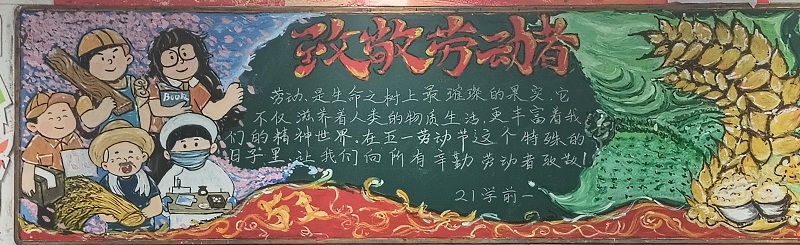 致敬劳动者
BOOK
劳动,是生命之树上最璀璨的果实,它
不仅滋养着人类的物质生活,更丰富着我
们的精神世界,在五一劳动节这个特殊的
日子里,让我们向所有辛勤劳动者致敬!
21学前一